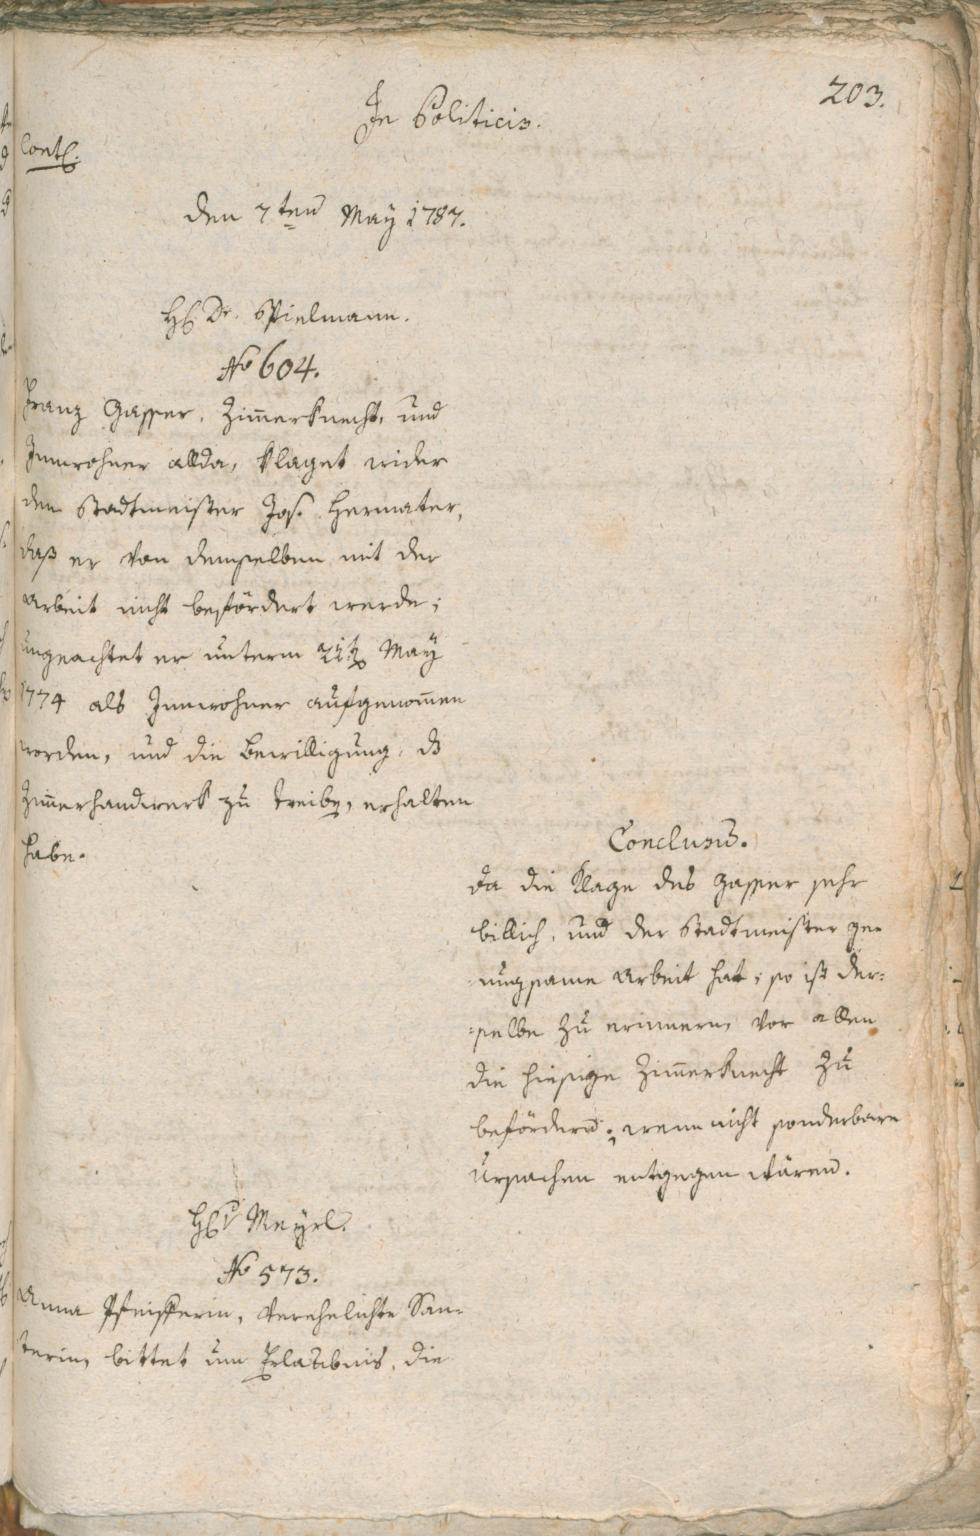 203.
In Politicis.
Cont.
den 7ten May 1787.
H Dr. Spielmann.
No 604.
Franz Gasser, Zimmerknecht, und
Innwohner allda, klaget wider
den Stadtmeister Jos. Hermater,
daß er von demselben mit der
Arbeit nicht befördert werde;
ungeachtet er unterm May
1774 als Innwohner aufgenommen
worden, und die Bewilligung, ds
Zimmerhandwerk zu treiben, erhalten
habe.
Conclusum.
Da die Klage des Gasser sehr
billich, und der Stadtmeister ge-
nugsame Arbeit hat; so ist der-
selbe zu erinnern, vor allen
die hiesige Zimmerknecht zu
befördern; wenn nicht sonderbare
Ursachen entgegen wären.
H v Meyrl.
No 573.
Anna Pfeifferin, verehelichte San-
terin, bittet um Erlaubnis, die